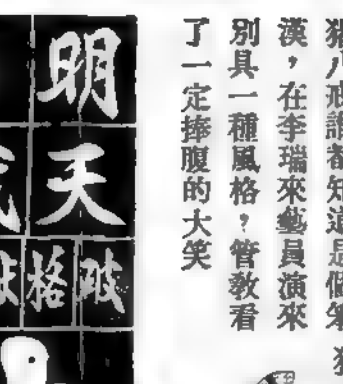 豬八戒誰都知道是個笨
漢，在李瑞來藝員演來
別具一種風格，管教看
了一定捧腹的大笑
明天
破格